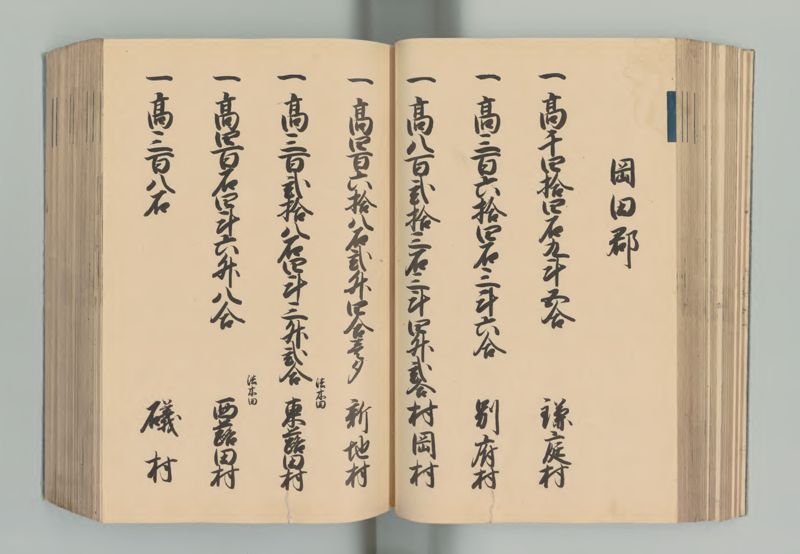 岡田郡
一高千四拾四石九斗五合 鎌庭村
一高三百六拾四石三斗六合 別府村
一高八百弐拾三石三斗四升弐合 村岡村
一高四百六拾八石弐升四合壱夕 新地村
一高三百弐拾八石四斗三升弐合 法木田 東蕗田村
一高四百石四斗六升八合 法木田 西蕗田村
一高三百八石 礒村